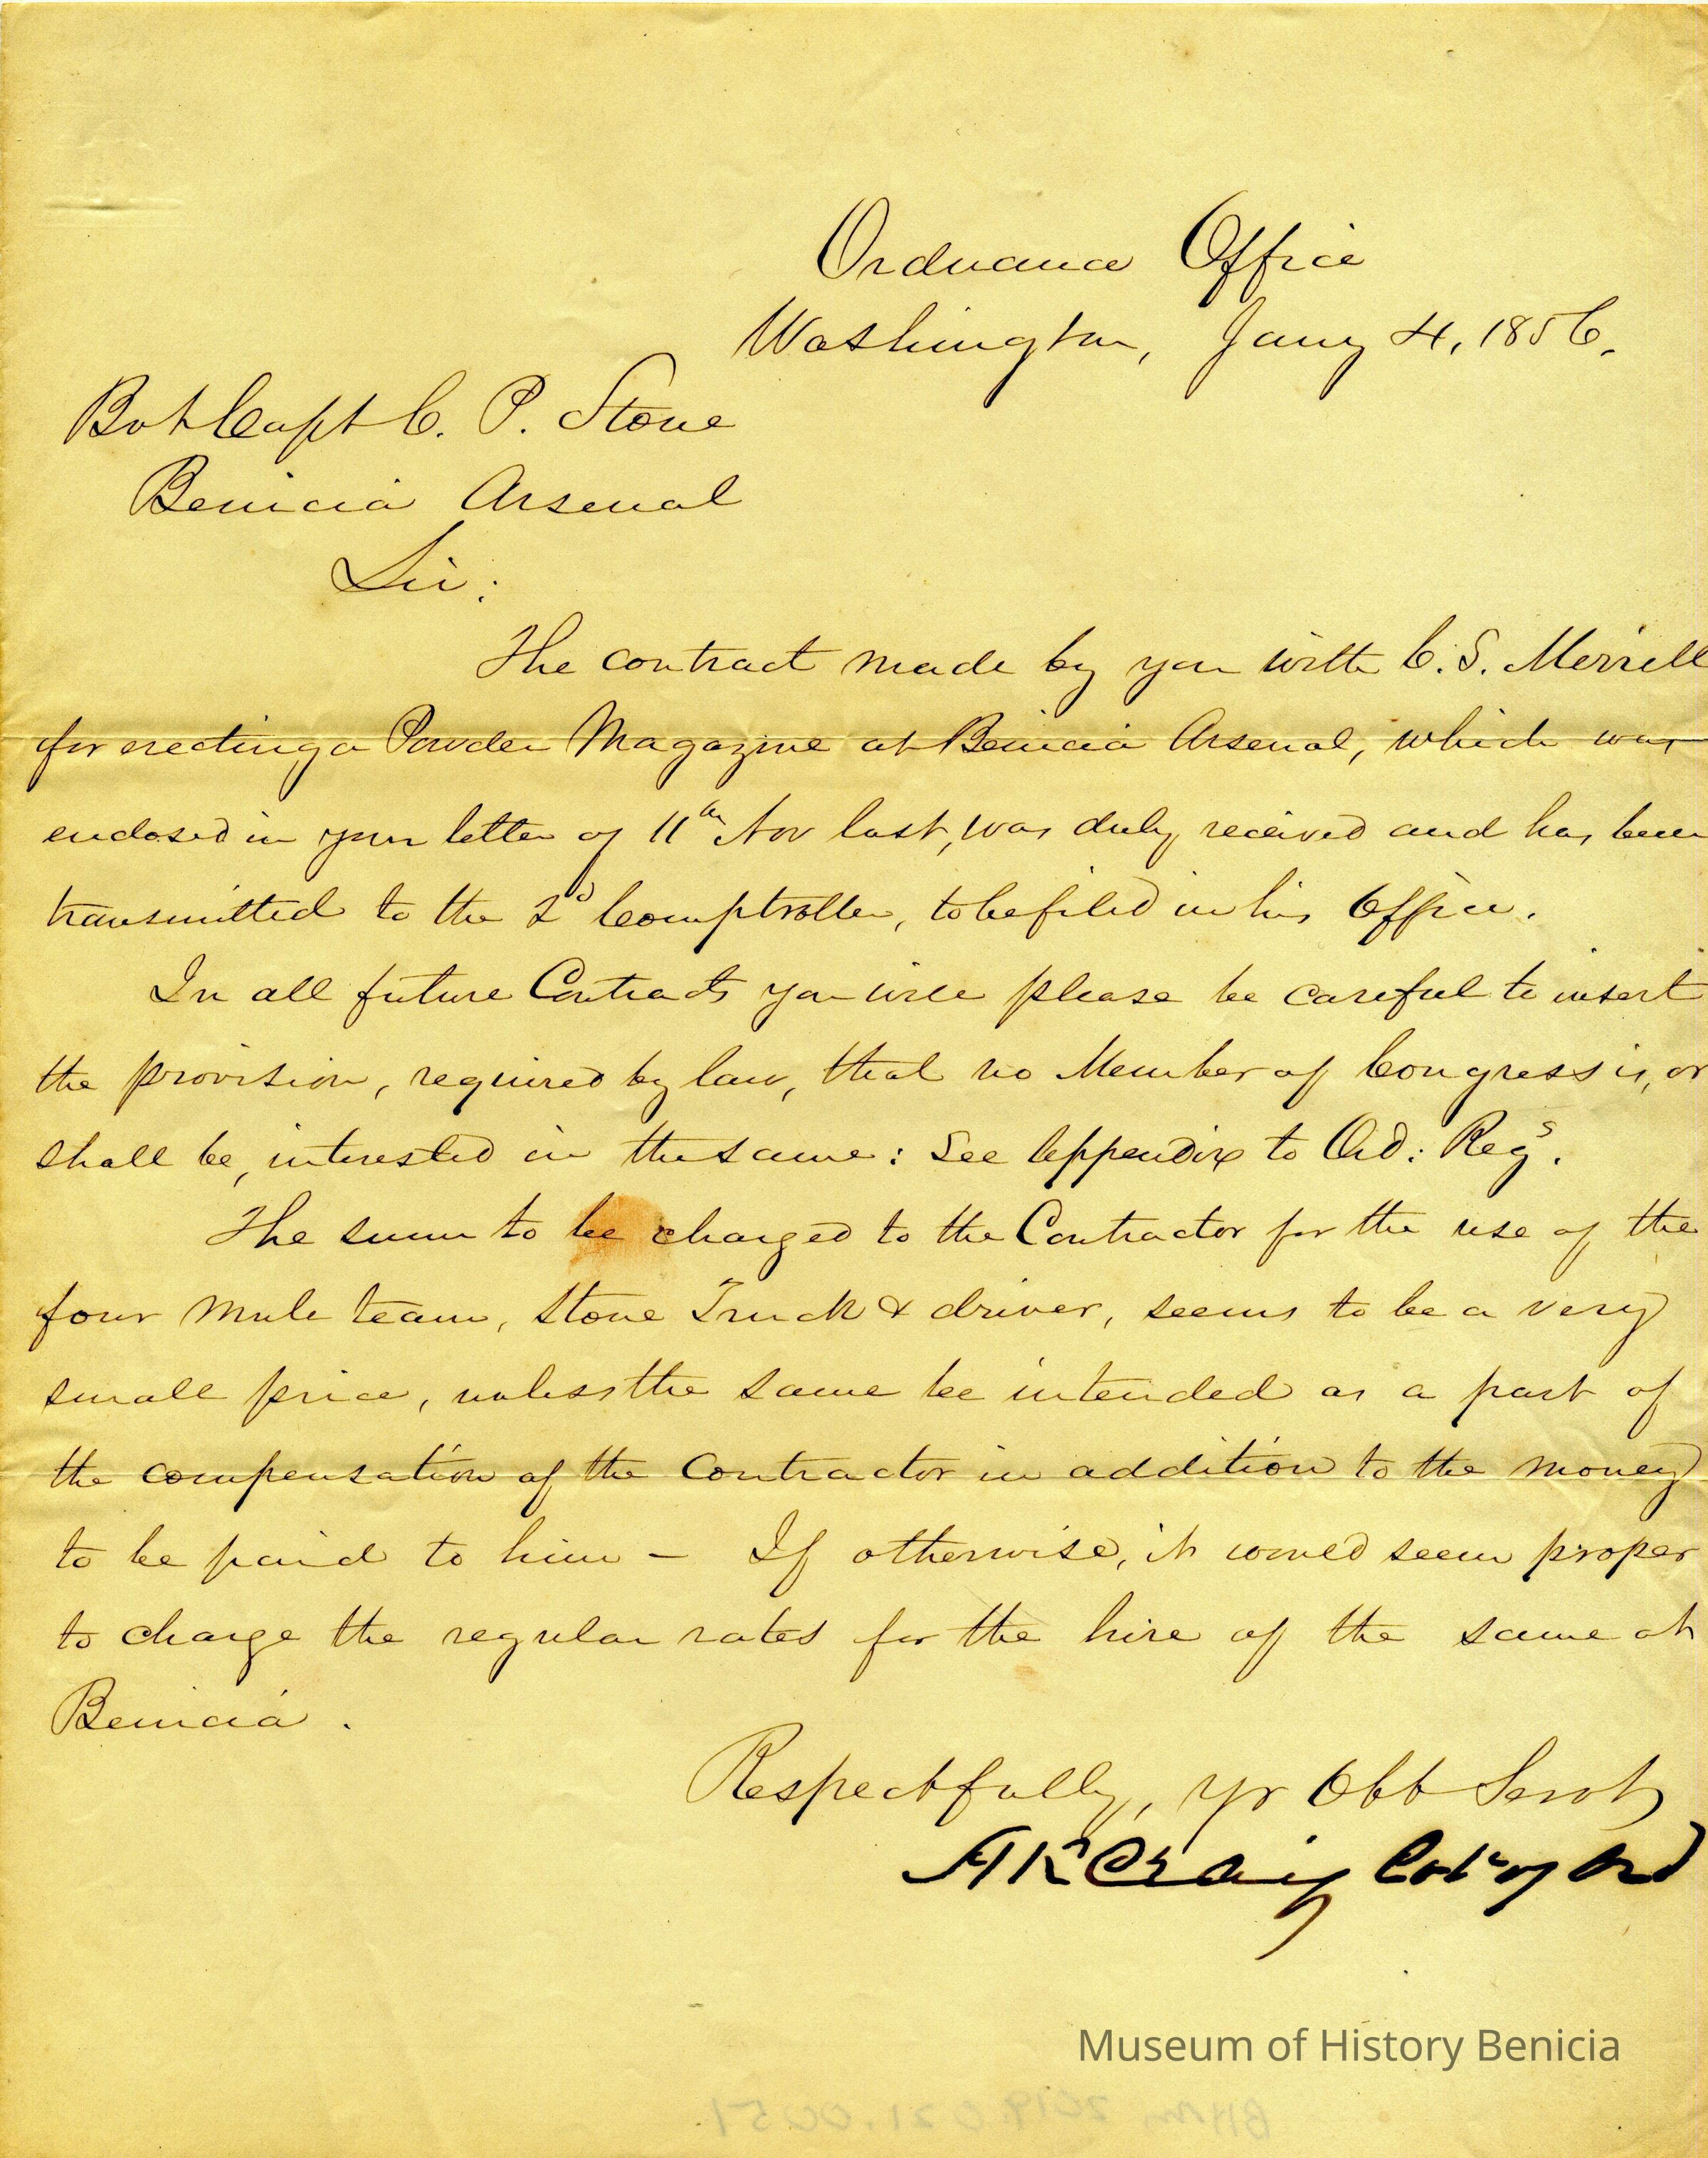 Ordnance Office
Washington, Jany 4, 1856.
Bvt Capt C. P. Stone
Benicia Arsenal
Sir:
The contract made by you with C. S. Merrill
for erecting a Powder Magazine at Benicia Arsenal, which was
enclosed in your letter of 11th Nov last, was duly received and has been
transmitted to the 2d Comptroller, to be filed in his Office.
In all future Contracts you will please be careful to insert
the provision, required by law, that no Member of Congress is, or
shall be, interested in the same: See Appendix to Ord: Regs.
The sum to be charged to the Contractor for the use of the
four mule team, Stone Truck & driver, seems to be a very
small price, unless the same be intended as a part of
the compensation of the Contractor in addition to the money
to be paid to him - If otherwise, it would seem proper
to charge the regular rates for the hire of the same at
Benicia.
Respectfully, Yr Obt Servt
H K Craig Col of Ord
Museum of History Benicia
BHM 2019.021.0051